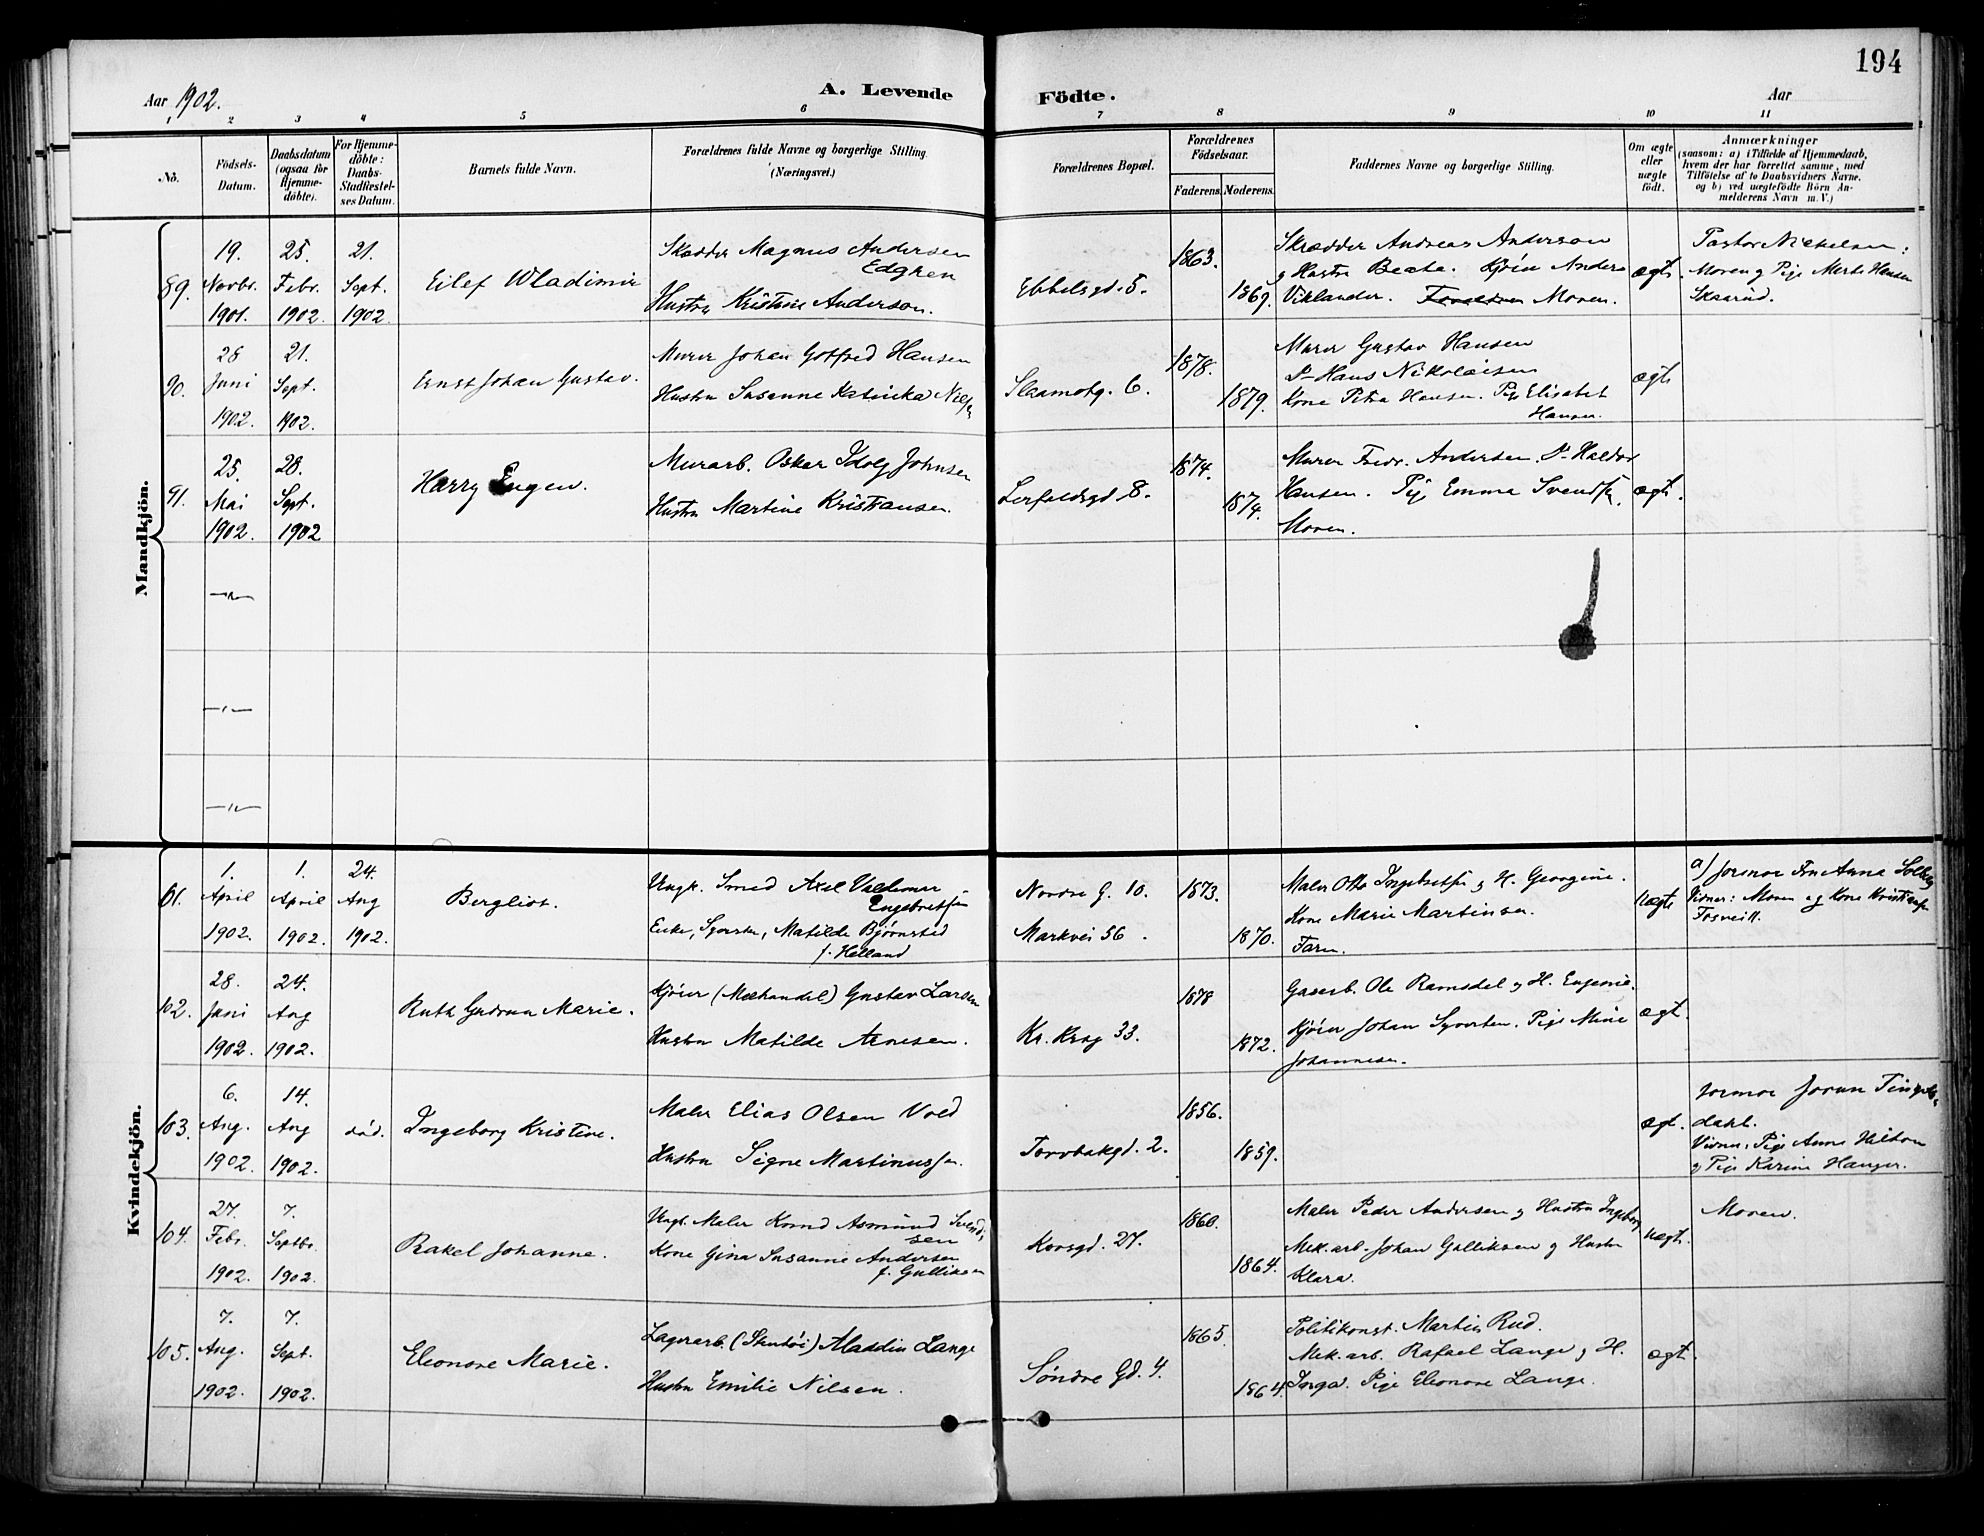 194
Aar 1902.
A. Levende
Födte.
Aar
1 2 3 4 5 6 7 8 9 10 11
No.
Födsels-
Datum.
Daabsdatum
(ogsaa for
Hjemme-
döbte).
For Hjemme-
döbte:
Daabs-
Stadfæstel-
ses Datum.
Barnets fulde Navn.
Forældrenes fulde Navne og borgerlige Stilling
(Næringsvei.)
Forældrenes Bopæl.
Forældrenes
Födselsaar.
Faderens.
Moderens.
Faddernes Navne og borgerlige Stilling.
Om ægte
eller
uægte
født.
Anmærkninger
(saasom: a) i Tilfælde af Hjemmedaab,
hvem der har forrettet samme, med
Tilföielse af to Daabsvidners Navne.
og b) ved uægtefödte Börn An-
melderens Navn m. V.)
Mandkjön.
89.
19.
Novbr.
1901.
25.
Febr.
1902.
21.
Sept.
1902.
Eilef Wladimir
Skrædder Magnus Andersen
Edgren
Hustru Kristine Anderson.
Ebbelsgd. 5.
1863.
1869.
Skrædder Andreas Anderson
og Hustru Beate. Kjöın Anders
Viklander. Moren.
ægte
Pastor
Moren og Pige Marte Hansen
Skaarud.
90.
28
Juni
1902.
21.
Sept.
1902.
Ernst Johan Gustav.
Murer Johan Gotfred Hansen
Hustru Susanne Katinka Nils
6.
1878.
1879.
Murer Gustav Hansen
Hans Nikolaisen
Kone Petra Hansen. Pige Elisabet
Hansen.
ægte
91.
25.
Mai
1902.
28.
Sept.
1902
Harry Eugen.
Murarb. Oskar Idolf Johnsen
Hustru Martine Kristiansen.
Lerfaldsgd 8.
1874.
1874.
Murer Fredr. Andersen. Haldor
Hansen. Pige Emma Svends
Moren.
ægte.
—"—
—"—
—"—
Kvindekjön.
101.
1.
April
1902.
1.
April
1902.
24.
Aug
1902.
Bergliot.
Ungk. Smed Axel Valdemar
Engebretsen
Enke, Syerske, Matilde Bjørnsted
f. Helland
Nordre G. 10.
Markvei 56.
1873.
1870.
Maler Otto Ingebretsen og H. Georgine.
Kone Marie Martinsen.
Faren.
Uægte
a) Jormor Fru Anna Solberg
Vidner: Moren og Kone
102.
28.
Juni
1902.
24.
Aug
1902.
Ruth Gudrun Marie.
Kjører (Melhandel) Gustav Larsen
Hustru Matilde Arnesen.
Kr. Krog 33.
1878
1872.
Gaserb. Ole Ramsdal og H. Eugenie.
Kjører Johan Syversten. Pige Mine
Johannesen.
ægt.
103.
6.
Aug.
1902.
14.
Aug
1902.
død.
Ingeborg Kristine.
Maler Elias Olsen Vold
Hustru Signe Martinussen.
Torvbakgd. 2.
1856.
1859.
ægt.
Jormor Jorun
dahl.
Vidner: Pige Anne
og Pige Karine Hanger.
104.
27.
Febr.
1902.
7.
Septbr.
1902.
Rakel Johanne.
Ungk. Maler Konrad Asmund Svend-
sen
Kone Gina Susanne Andersen
f. Gulliksen
Korsgd. 27.
1860.
1864.
Maler Peder Andersen og Hustru Ingeborg
Mek. arb. Johan Gulliksen og Hustru
Klara.
uægte.
Moren.
105.
7.
Aug.
1902.
7.
Sept.
1902.
Eleonore Marie.
Lagerarb. (Skotöi) Aladdin Lange
Hustru Emilie Nilsen.
Søndre Gd. 4.
1865
1864.
Politikonst. Martin Rud.
Mek. arb. Rafael Lange og H.
Inga. Pige Eleonore Lange.
ægt.